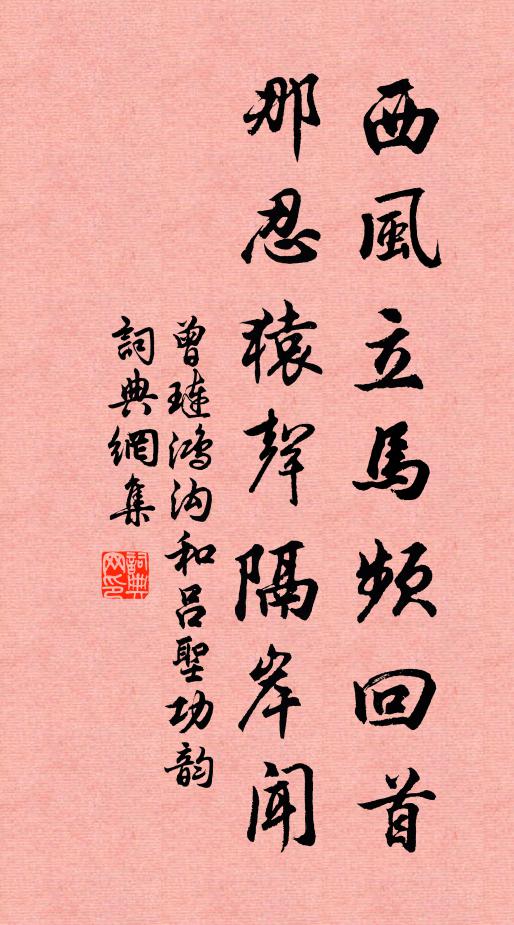 西風立馬頻回首
那忍猿聲隔岸聞
曾璉鴻沟和呂聖功韵
詞典網集
詞典网印